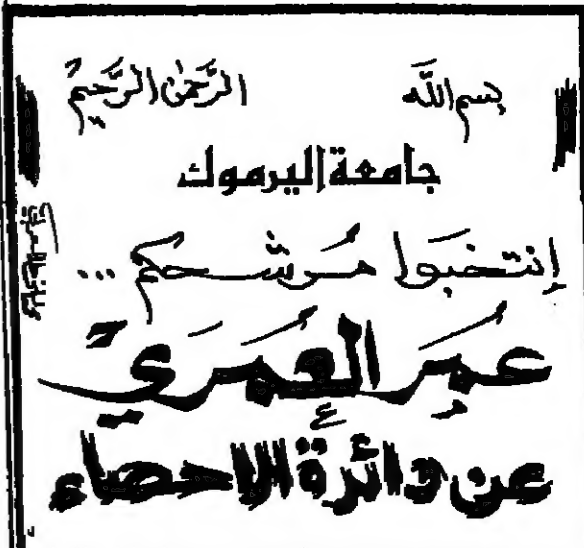 بسم الله الرَّحمٰن الرَّحيم
جامعة اليرموك
إنتخبَوا مُرشّحكم ...
عُمَر العُمَري
عن دائرة الاحصاء